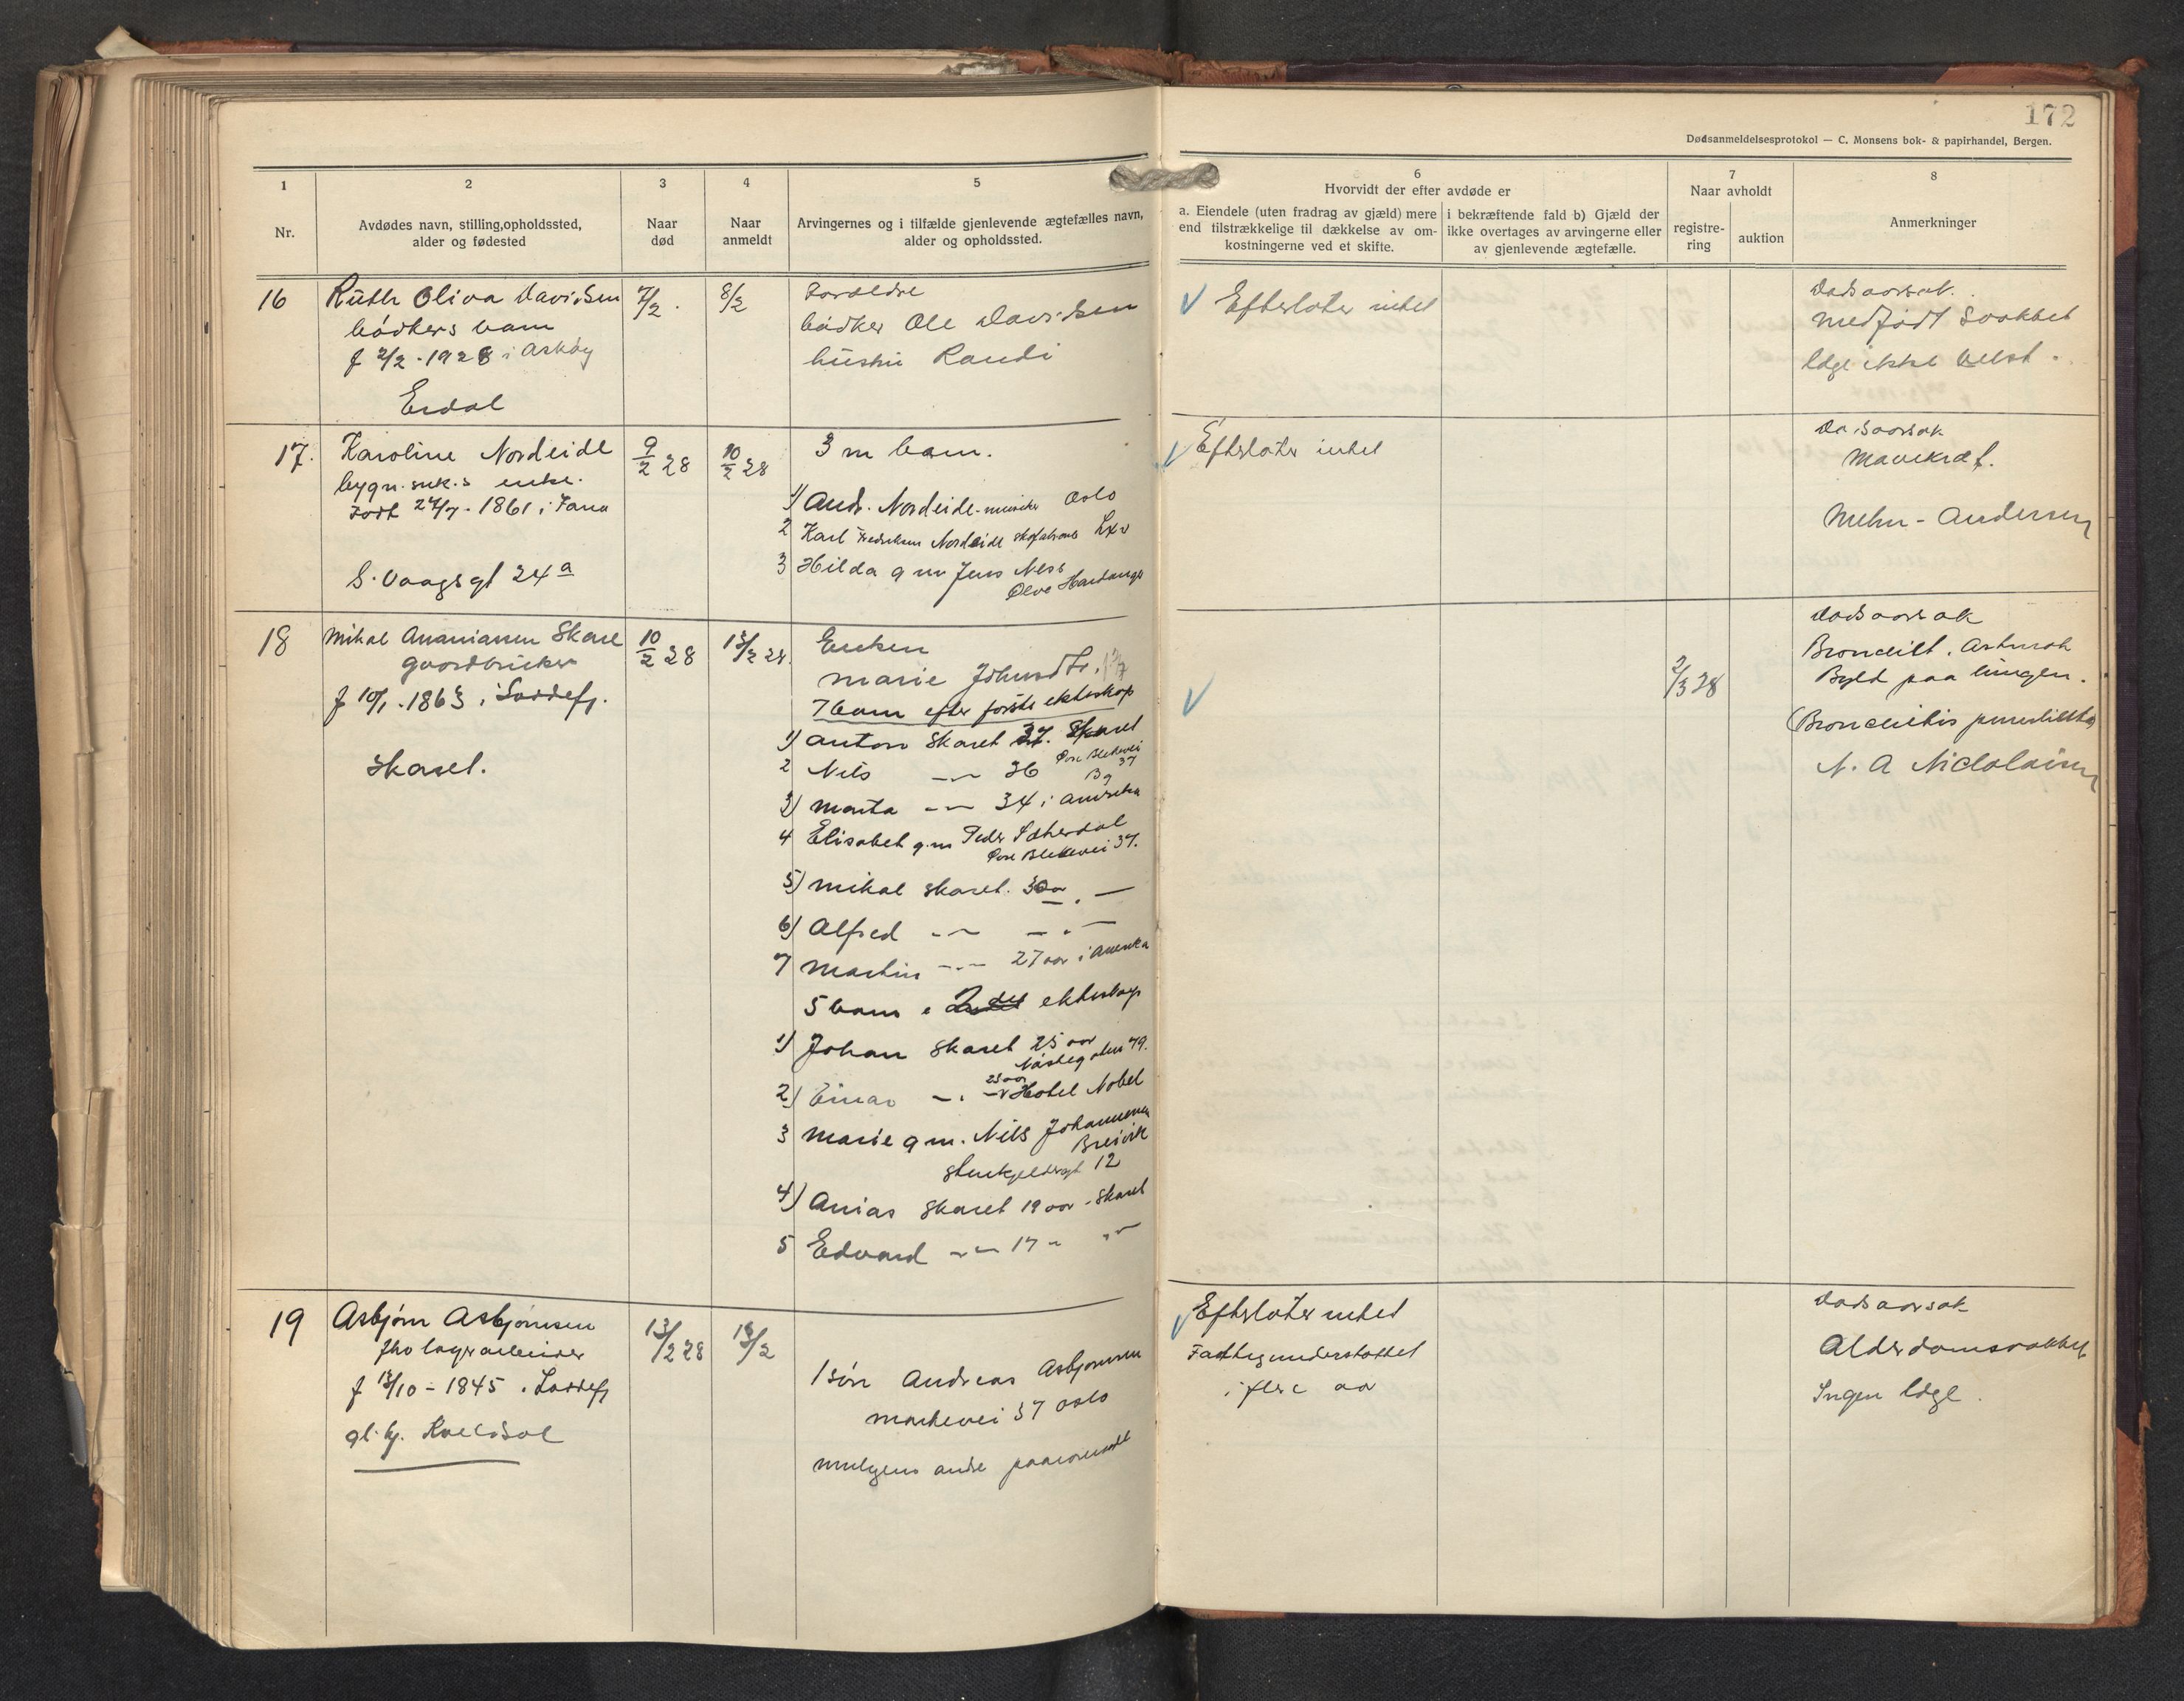 172
Dødsanmeldelsesprotokol — C. Monsens bok- & papirhandel, Bergen.
1
Nr.
2
Avdødes navn, stilling, opholdssted,
alder og fødested
3
Naar
død
4
Naar
anmeldt
5
Arvingernes og i tilfælde gjenlevende ægtefælles navn,
alder og opholdssted.
6
Hvorvidt der efter avdøde er
a. Eiendele (uten fradrag av gjæld) mere
end tilstrækkelige til dækkelse av om-
kostningerne ved et skifte.
i bekræftende fald b) Gjæld der
ikke overtages av arvingerne eller
av gjenlevende ægtefælle.
7
Naar avholdt
registre-
ring
auktion
8
Anmerkninger
16
Ruth Oliva Davidsen
bødkers barn
f 2/2 - 1928 i Askøy
Erdal
7/2
8/2
Foreldre
bødker Ole Davidsen
hustru Randi
Efterlater intet
Dødsaarsak.
Medfødt svakhet
læge ikke
17.
Karoline Nordeide
bygn. snk.s enke.
Født 27/7 - 1861 i Fana
S. Vaagsgt 24a
9/2 28
10/2 28
3 m barn.
1) Andr. Nordeide - Oslo
2 Karl Fredriksen Nordeide
3 Hilda g m Jens Ness
Ølve Hardanger
Efterlater intet
Dødsaarsak
Mavekræf.
Mehn-Andersen
18
Mikal Ananiassen Skaret
gaardbruker
f 10/1 - 1863 i Loddefj.
Skaret.
10/2 28
13/2 28.
Enken
Marie
7 barn efter første ekteskap
1) Anton Skaret 37. Skaret
2 Nils -"- 36 Øvre Blekevei
Bg 37
3) Marta -"- 34 i Amerika
4 Elisabet g.m Peder Sætherdal
Øvre Blekevei 37.
5) Mikal Skaret. 30 aar -"-
6) Alfred -"- -"-
7 Martin -"- 27 aar i Amerika
5 barn i 2det ekteskap
1) Johan Skaret 25 aar
Nøstegaten 79.
2) Einar -"- 23 aar Hotel Nobel
3 Marie g m. Nils Johannesen
Breivik
Stenkjeldergt 12
4) Anias Skaret 19 aar - Skaret
5 Edvard -"- 17 " -"-
2/3 28
Dødsaarsak
Bronchitt. Astmatisk
Byld paa lungen.
(Bronchitis
N. A Nicolaisen
19
Asbjørn Asbjørnsen
fhv lagerarbeider
f 18/10 - 1845 i Loddefj
gl. hj. Kvelsol
13/2 28
13/2
1 søn Andreas Asbjørnsen
37 Oslo
muligens andre paarørende
Efterlater intet
Fattigunderstøttet
i flere aar
Dødsaarsak
Alderdomssvakhet
Ingen læge.